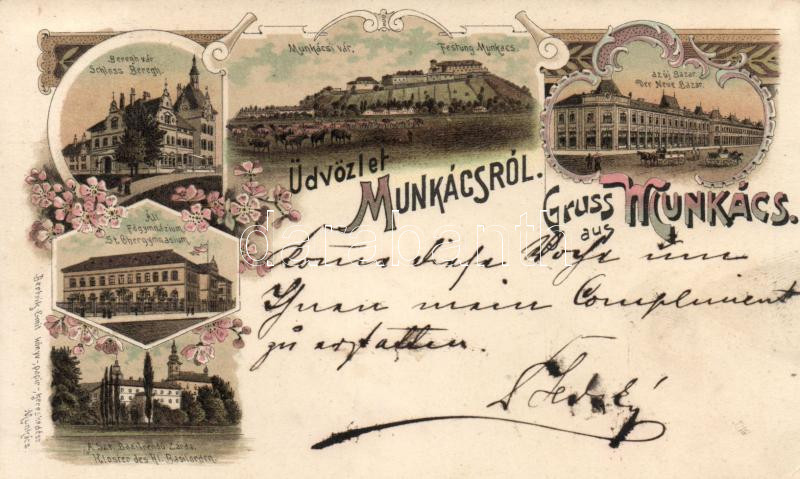 Beregh vár.
Schloss Beregh.
Munkácsi vár.
Festung Munkács.
az új Bazar.
Der Neue Bazar.
Üdvözlet
MUNKÁCSRÓL.
Gruss
aus
MUNKÁCS.
Áll.
Fögymnázium
St. Obergymnasium
A Szt. Bazilrendü Zárda.
Kloster des Hl. Basilorden.
Emil könyv-, papir-,
Munkács
darabanth
Komme diese Woche um
Ihnen mein Compliment
zu erstatten.